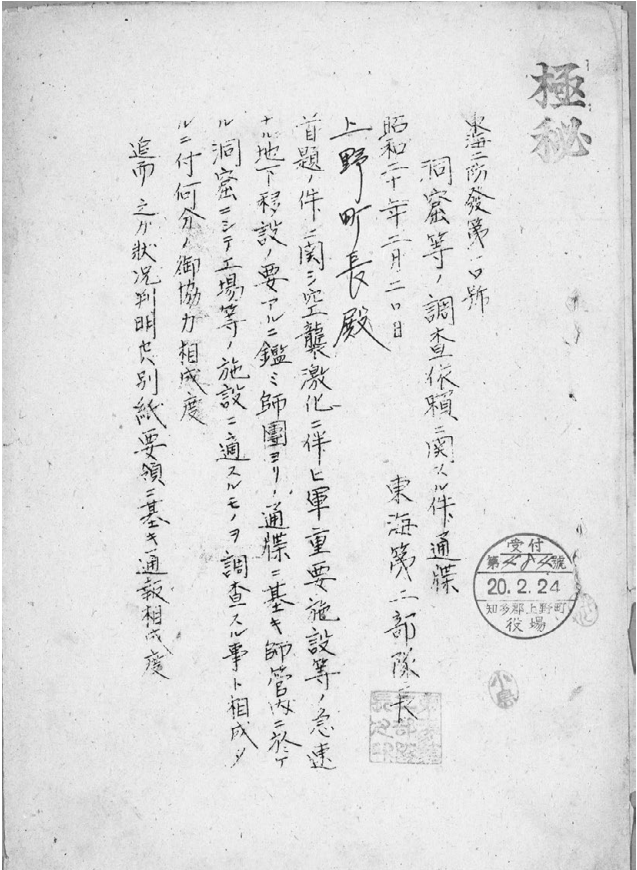 極秘
東海二防發第一〇號
洞窟等ノ調査依賴ニ関スル件通牒
昭和二十年二月二〇日
東海第二部隊長
上野町長殿
首題ノ件ニ関シ空襲激化ニ伴ヒ軍重要施設等ノ急速
ナル地下移設ノ要アルニ鑑ミ師團ヨリノ通牒ニ基キ師管内ニ於ケ
ル洞窟ニシテ工場等ノ施設ニ適スルモノヲ調査スル事ト相成タ
ルニ付何分ノ御協力相成度
追而之ガ状况判明セバ別紙要領ニ基キ通報相成度
受付
第 號
20.2.24
知多郡上野町
役場
小島